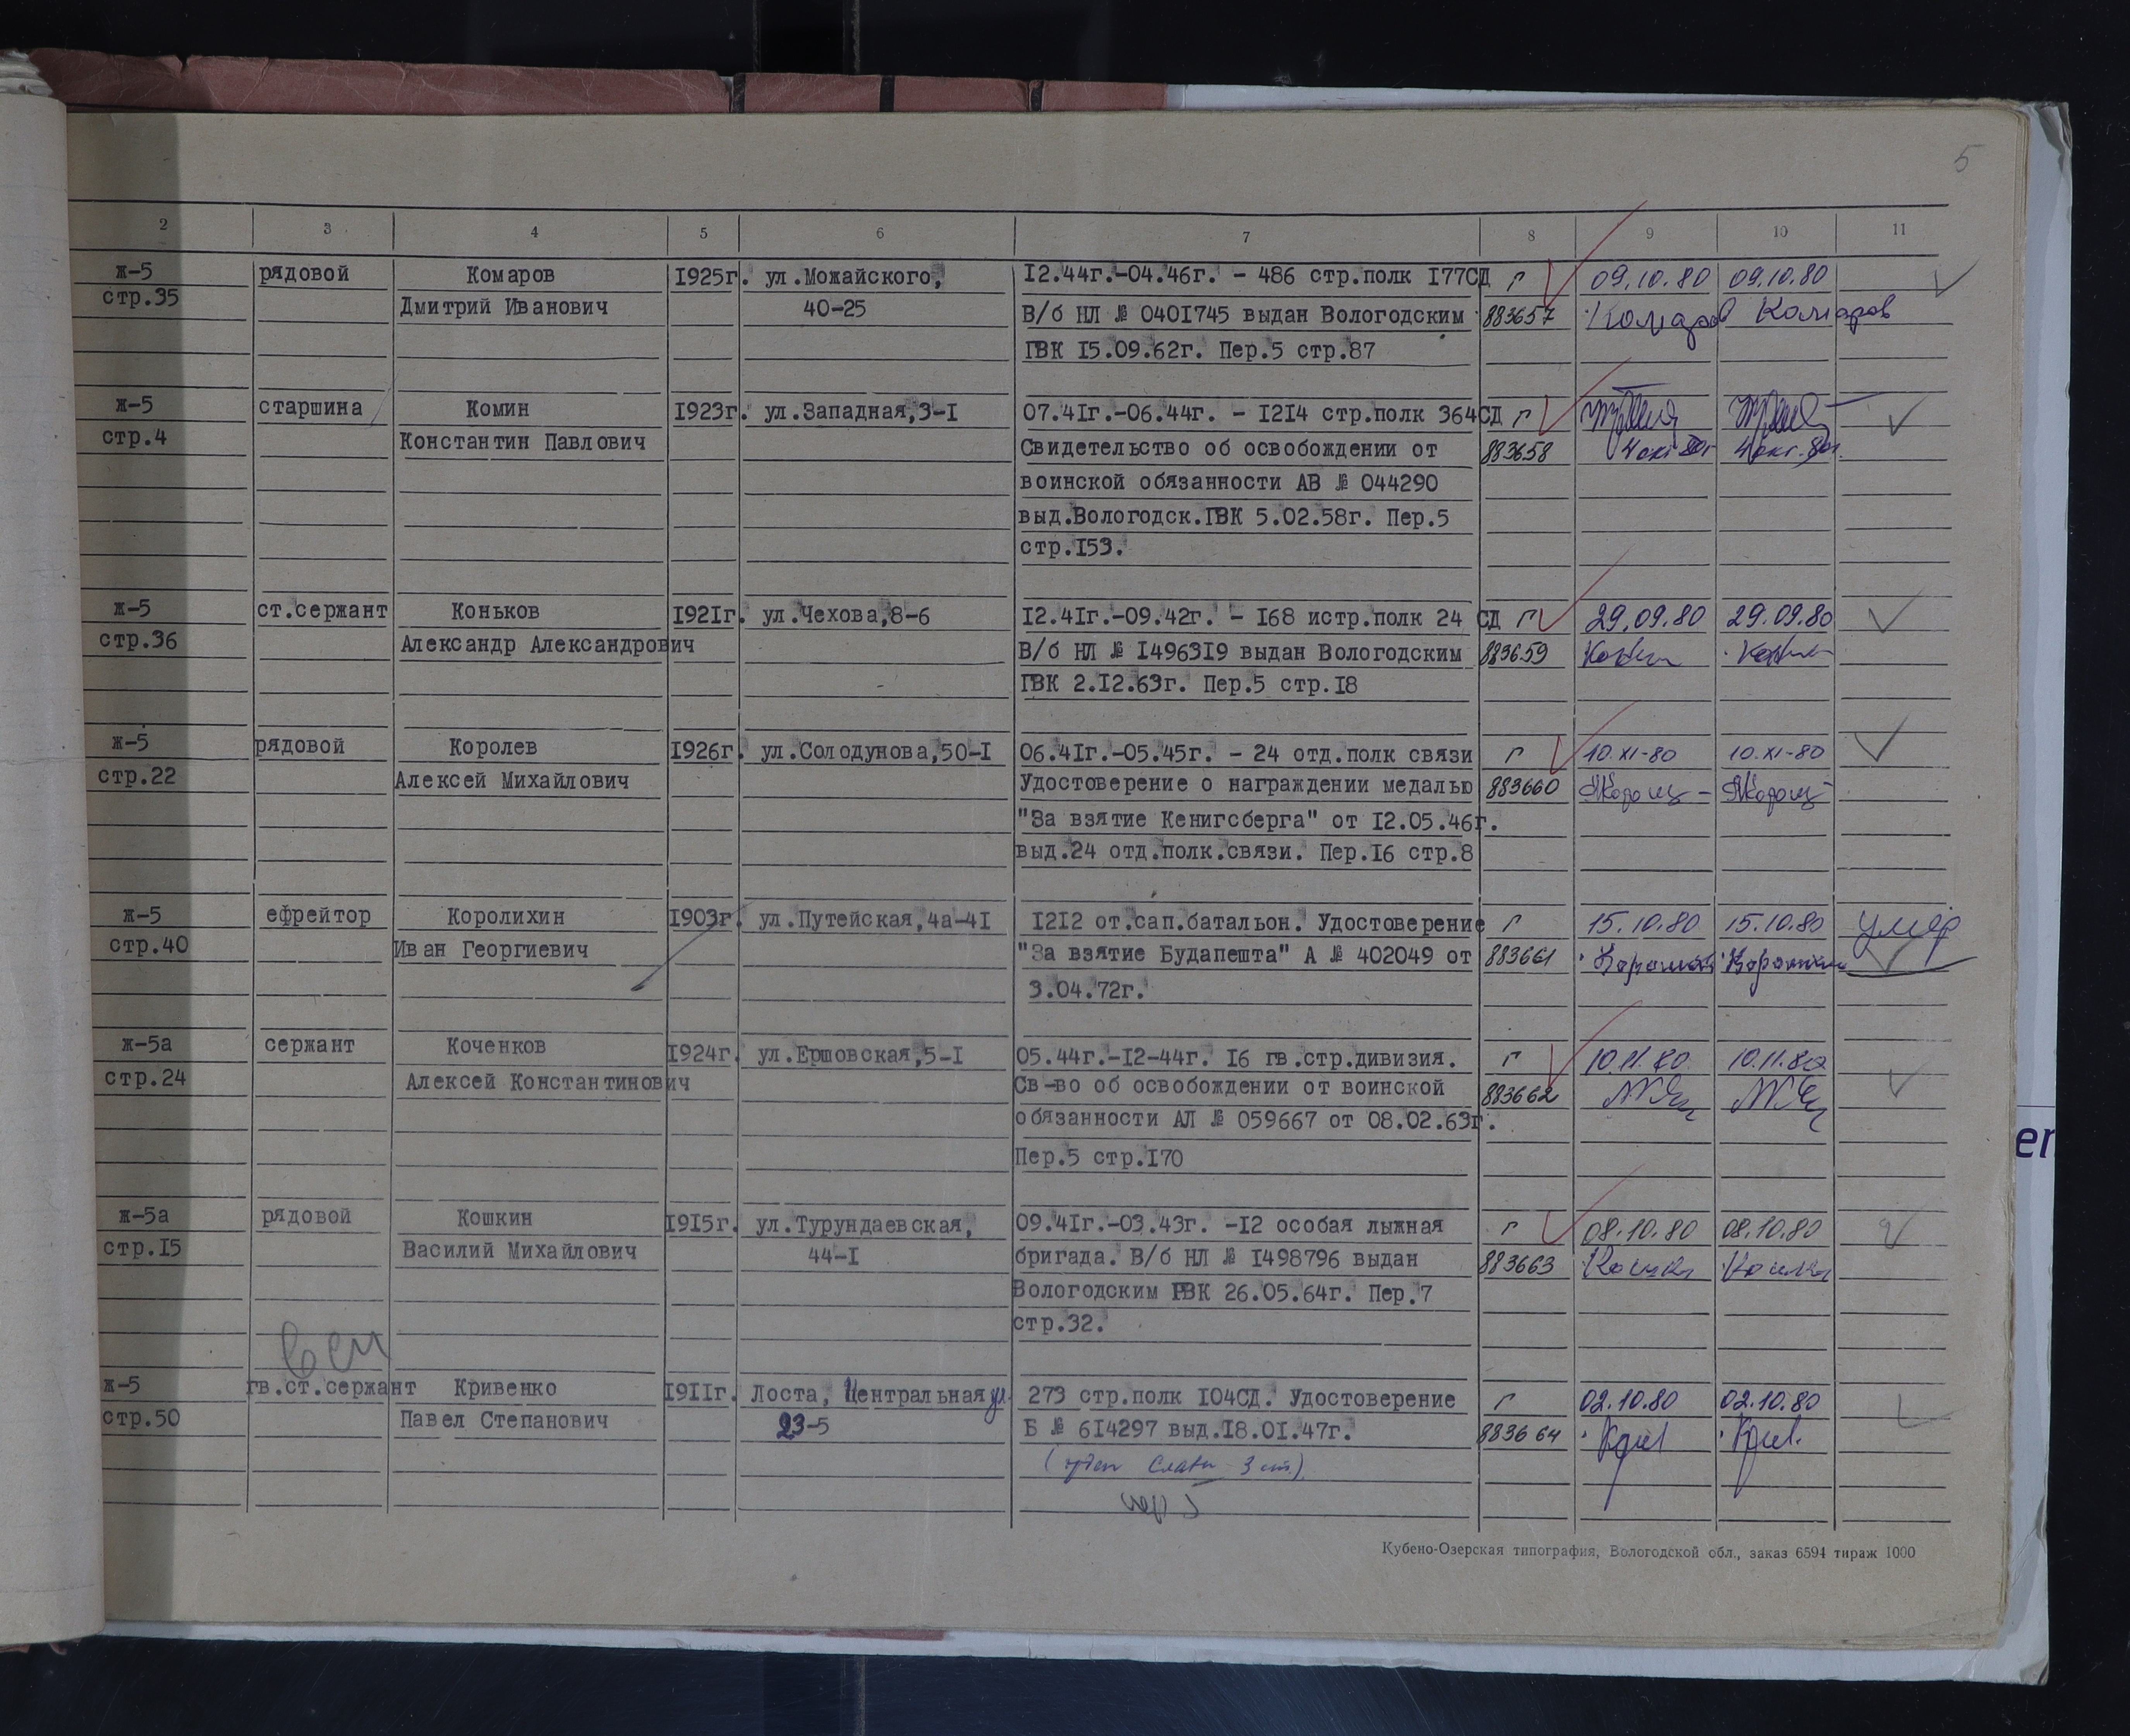 5
2 3 4 5 6 7 8 9 10 11
ж-5 рядовой Комаров 1925г. ул.Можайского, 12.44г.-04.46г. - 486 стр.полк 177СД г 09.10.80 09.10.80
стр.35 Дмитрий Иванович 40-25 В/б НЛ № 0401745 выдан Вологодским 883657 Комаров Комаров
ГВК 15.09.62г. Пер.5 стр.87
ж-5 старшина Комин 1923г. ул.Западная,3-1 07.41г.-06.44г. - 1214 стр.полк 364СД г
стр.4 Константин Павлович Свидетельство об освобождении от 883658 4 окт 80г 4 окт. 80г.
воинской обязанности АВ № 044290
выд.Вологодск.ГВК 5.02.58г. Пер.5
стр.153.
ж-5 ст.сержант Коньков 1921г. ул.Чехова,8-6 12.41г.-09.42г. - 168 истр.полк 24 СД г 29.09.80 29.09.80
стр.36 Александр Александрович В/б НЛ № 1496319 выдан Вологодским 883659
ГВК 2.12.63г. Пер.5 стр.18
ж-5 рядовой Королев 1926г. ул.Солодунова,50-1 06.41г.-05.45г. - 24 отд.полк связи г 10.XI-80 10.XI-80
стр.22 Алексей Михайлович Удостоверение о награждении медалью 883660
"За взятие Кенигсберга" от 12.05.46г.
выд.24 отд.полк.связи. Пер.16 стр.8
ж-5 ефрейтор Королихин 1903г. ул.Путейская,4а-41 1212 от.сап.батальон. Удостоверение г 15.10.80 15.10.80 умер
стр.40 Иван Георгиевич "За взятие Будапешта" А № 402049 от 883661
3.04.72г.
ж-5а сержант Коченков 1924г. ул.Ершовская,5-1 05.44г.-12-44г. 16 гв.стр.дивизия. г 10.11.80 10.11.80
стр.24 Алексей Константинович Св-во об освобождении от воинской 883662
обязанности АЛ № 059667 от 08.02.63г.
Пер.5 стр.170
ж-5а рядовой Кошкин 1915г. ул.Турундаевская, 09.41г.-03.43г. -12 особая лыжная г 08.10.80 08.10.80
стр.15 Василий Михайлович 44-1 бригада. В/б НЛ № 1498796 выдан 883663
Вологодским РВК 26.05.64г. Пер.7
стр.32.
ж-5 гв.ст.сержант Кривенко 1911г. Лоста, Центральная ул. 273 стр.полк 104СД. Удостоверение г 02.10.80 02.10.80
стр.50 Павел Степанович 23-5 Б № 614297 выд.18.01.47г. 883664
(орден Славы 3 ст)
Кубено-Озерская типография, Вологодской обл., заказ 6594 тираж 1000